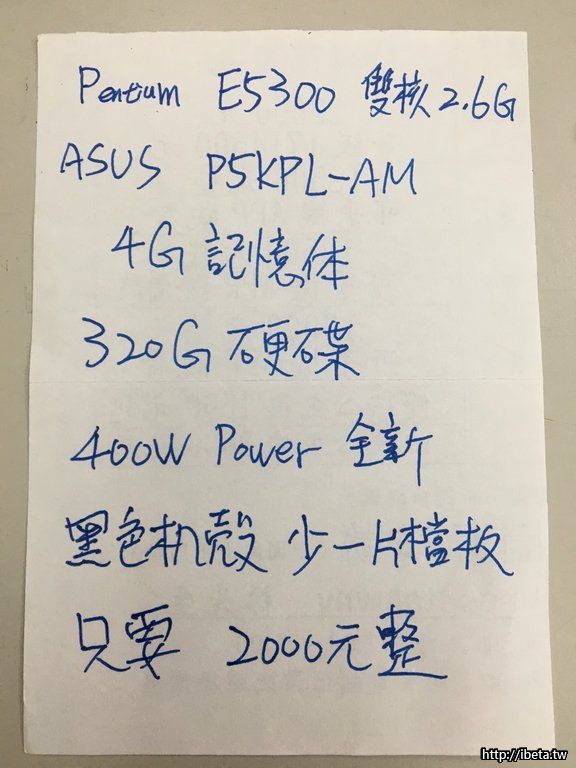 Pentium E5300 雙核 2.6G
ASUS P5KPL-AM
4G 記憶体
320G 硬碟
400W Power 全新
黑色机殼 少一片檔板
只要 2000元整
http://ibeta.tw